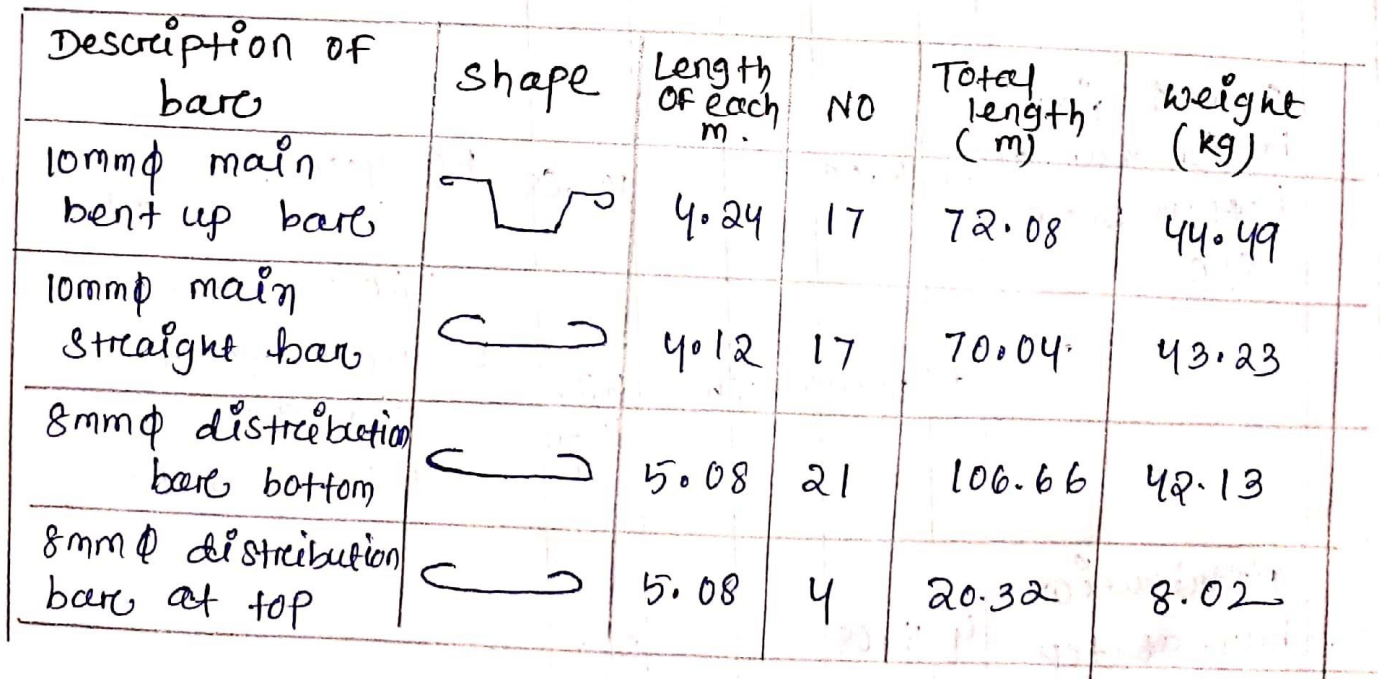 Description of bar Shape Length of each m. NO Total length (m) weight (kg)
10mmφ main bent up bar 4.24 17 72.08 44.49
10mmφ main straight bar 4.12 17 70.04 43.23
8mmφ distribution bar bottom 5.08 21 106.66 42.13
8mmφ distribution bar at top 5.08 4 20.32 8.02